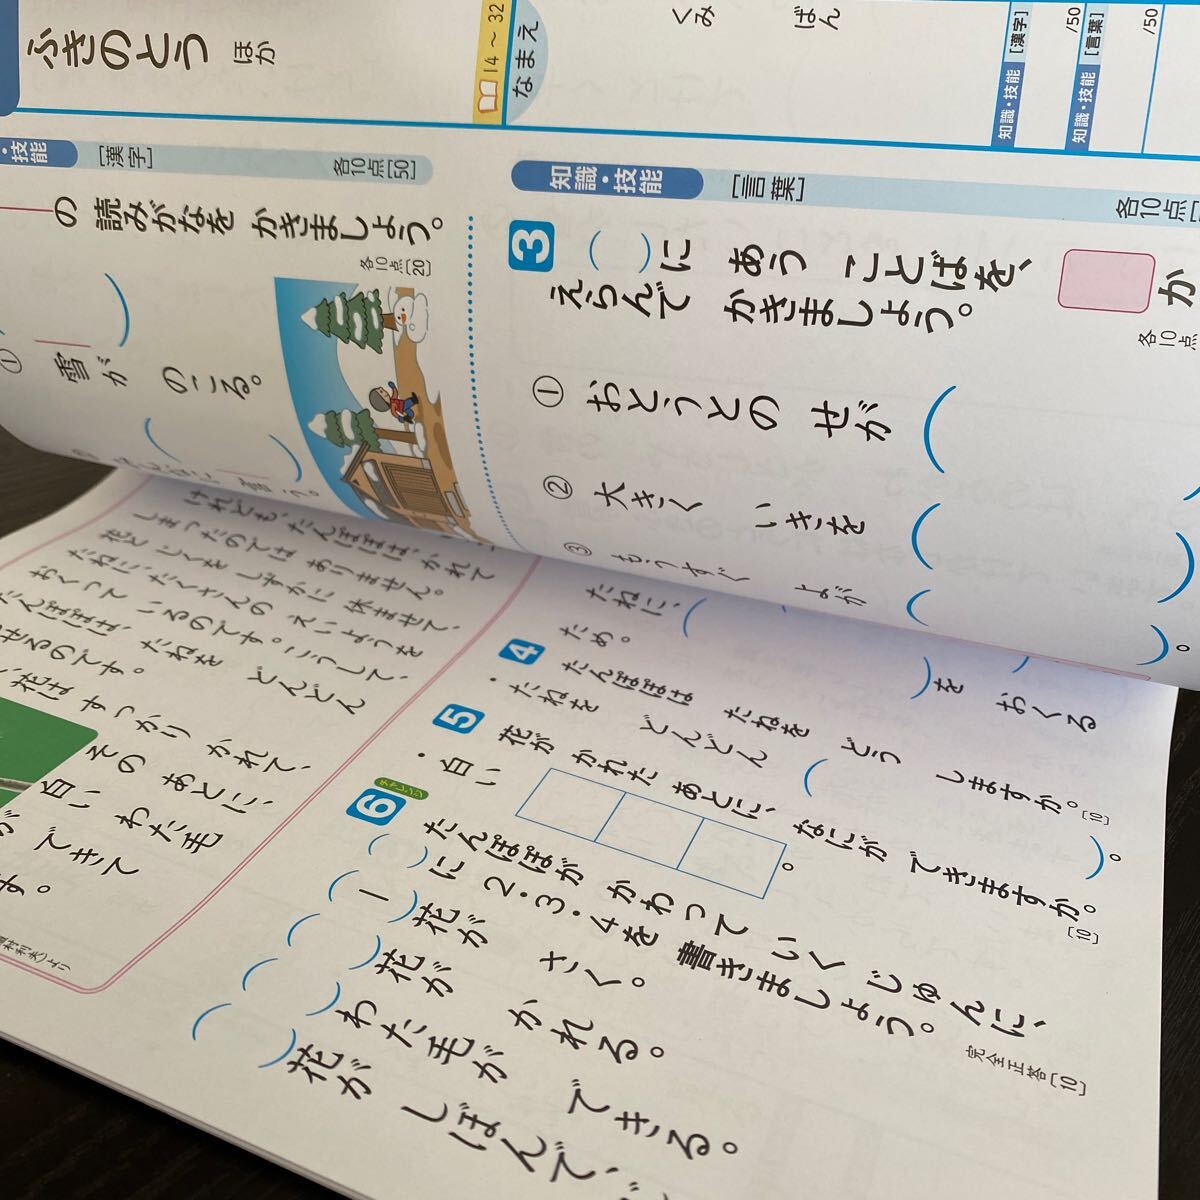 ふきのとう ほか
14～32
なまえ
くみ
ばん
知識・技能 [漢字]
/50
知識・技能 [言葉]
/50
・技能
[漢字]
各10点[50]
の 読みがなを かきましょう。
各10点[20]
① 雪が のこる。
言う。
知識・技能
[言葉]
各10点[
3 ( )に あう ことばを、
えらんで かきましょう。
① おとうとの せが (
② 大きく いきを (
③ もうすぐ よが (
)。
か
各10点
たねに、( )を おくる
ため。
4 たんぽぽは たねを どう しますか。[10]
・たねを どんどん ( )。
5 花が かれた あとに、なにが できますか。[10]
・白い 。
6 チャレンジ たんぽぽが かわって いく じゅんに、
( )に 2・3・4を 書きましょう。
完全正答[10]
( 1 )花が さく。
( )花が かれる。
( )わた毛が できる。
( )花が しぼんで、
けれども、たんぽぽは、かれて
しまったのでは ありません。
花と じくを しずかに 休ませて、
たねに、たくさんの えいようを
おくって いるのです。こうして、
たんぽぽは、たねを どんどん
せるのです。
花は すっかり かれて、
その あとに、
白い わた毛
が できて
す。
より